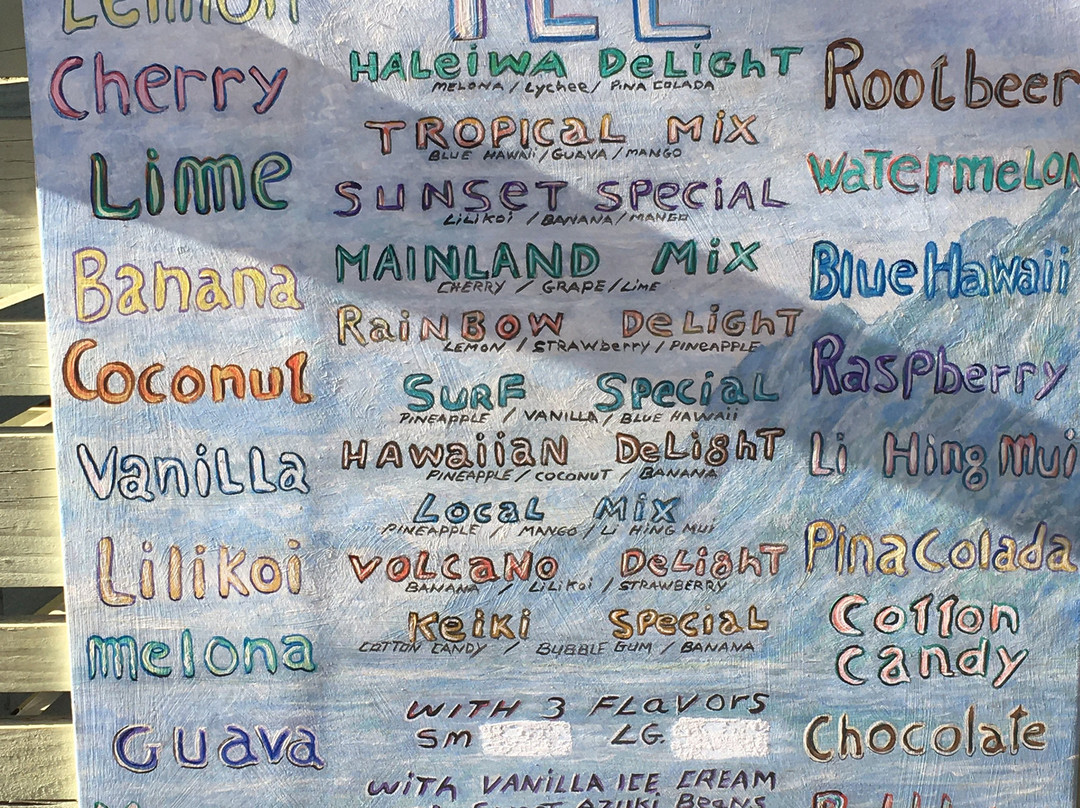 Lemon
Cherry
Lime
Banana
Coconut
Vanilla
Lilikoi
melona
Guava
ICE
HALeiWA DeLiGhT
MELONA / Lychee / PiNA COLADA
TROPiCaL MiX
BLUE HAWAii / GUAVA / MANGO
SUNSET SPECiAL
LiLiKoi / BANANA / MANGO
MAiNLAND MiX
CHERRY / GRAPE / LiME
RaiNBOW DeLiGhT
LEMON / STRAWberry / PiNEAPPLE
SURF SPeciaL
PiNEAPPLE / VANiLLA / BLUE HAWAii
HAWaiiaN DeLighT
PiNEAPPLE / COCONUT / BANANA
LocaL MiX
PiNEAPPLE / MANGO / Li HiNG MUi
VOLCaNO DeLighT
BANANA / LiLiKoi / STRAWBERRY
KeiKi SPeciaL
COTTON CANDY / BUBBLE GUM / BANANA
WiTH 3 FLAVORS
SM LG.
WiTH VANiLLA iCE CREAM
SWEET AZUKi BeANS
Rootbeer
WaTermeLON
Blue Hawaii
Raspberry
Li Hing Mui
Pina Colada
Cotton
Candy
Chocolate